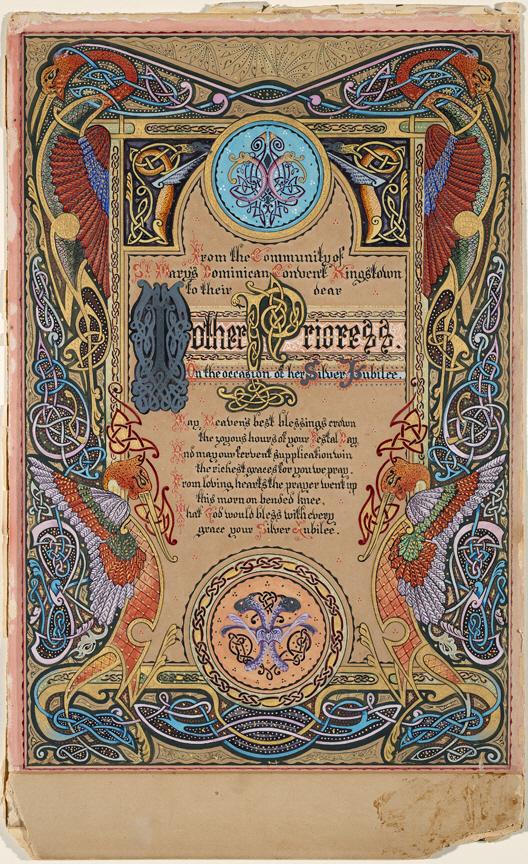 From the Community of
St Mary's Dominican Convent Kingstown
to their dear
Mother Prioress.
On the occasion of her Silver Jubilee.
May Heaven's best blessings crown
the joyous hours of your Festal Day,
And may our fervent supplication win
the richest graces for you we pray.
From loving hearts the prayer went up
this morn on bended knee.
That God would bless with every
grace your Silver Jubilee.